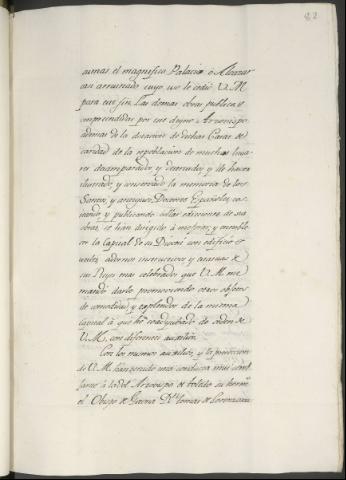 82
aumas el magnifico Palacio ó Alcazar
casi arruinado cuyo uso le cedió V.M.
para este fin. Las demas obras publicas
emprendidas por este digno Arzobispo
ademas de la dotacion de dichas Casas de
caridad de la repoblacion de muchos luga
res desamparados, y desterrados y de haver
ilustrado, y conservado la memoria de los
Santos, y antiguos Doctores Españoles, cos
teando y publicando bellas ediciones de sus
obras, se han dirigido á mejorar, y ennoble
cer la Capital de su Diocesi con edificios
utiles, adornos instructivos y estatuas de
sus Reyes mas celebrados que V.M. me
mandó darle, promoviendo otros objetos
de comodidad, y esplendor de la misma
Capital á que he coadyubado de orden de
V.M. con diferentes auxilios.
Con los mismos auxilios, y la proteccion
de V.M. han tenido una conducta mui semi
jante á la del Arzobispo de Toledo su herm.º
el Obispo de Gerona D.n Tomas de Lorenzana